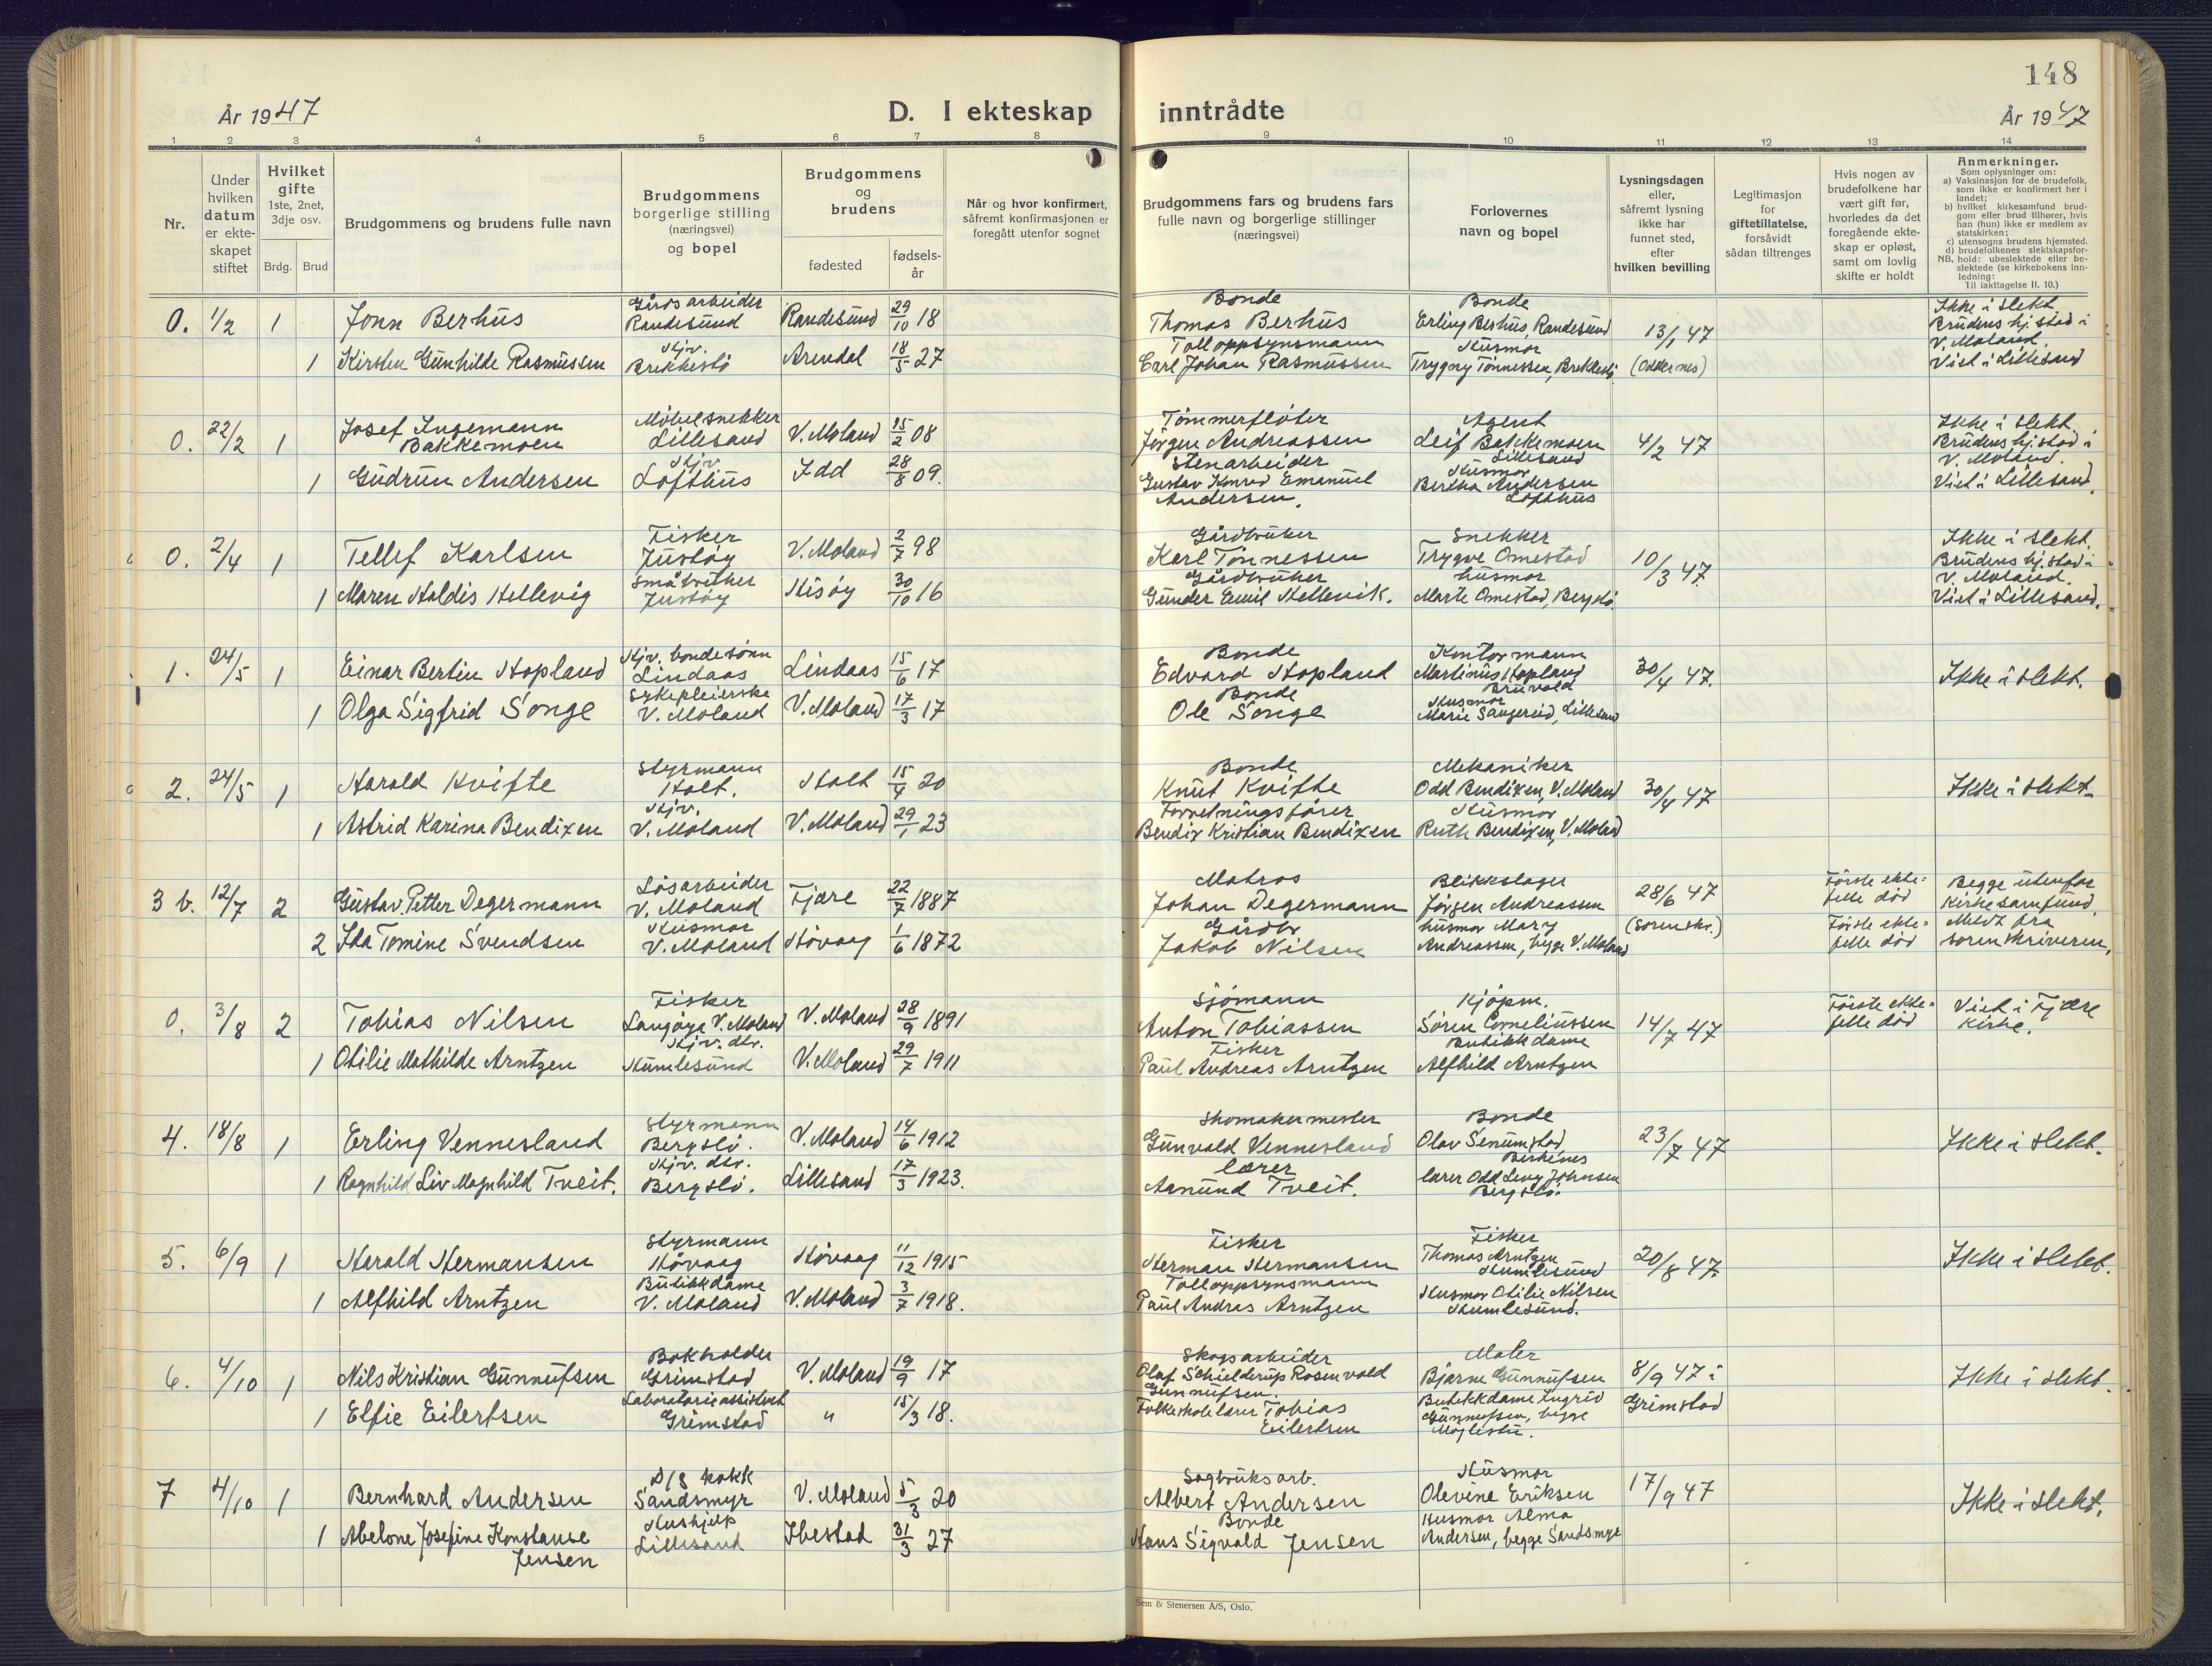 148
År 1947
D. I ekteskap inntrådte
År 1947
1 2 3 4 5 6 7 8 9 10 11 12 13 14
Nr.
Under hvilken datum er ekteskapet stiftet
Hvilket gifte 1ste, 2net, 3dje osv.
Brdg. Brud
Brudgommens og brudens fulle navn
Brudgommens borgerlige stilling (næringsvei) og bopel
Brudgommens og brudens
fødested
fødselsår
Når og hvor konfirmert, såfremt konfirmasjonen er foregått utenfor sognet
Brudgommens fars og brudens fars fulle navn og borgerlige stillinger (næringsvei)
Forlovernes navn og bopel
Lysningsdagen eller, såfremt lysning ikke har funnet sted, efter hvilken bevilling
Legitimasjon for giftetillatelse, forsåvidt sådan tiltrenges
Hvis nogen av brudefolkene har vært gift før, hvorledes da det foregående ekteskap er opløst, samt om lovlig skifte er holdt
Anmerkninger.
Som oplysninger om:
a) Vaksinasjon for de brudefolk, som ikke er konfirmert her i landet;
b) hvilket kirkesamfund brudgom eller brud tilhører, hvis han (hun) ikke er medlem av statskirken;
c) utensogns brudens hjemsted.
d) brudefolkenes slektskapsforhold: ubeslektede eller beslektede (se kirkebokens innledning:
NB. Til iakttagelse II. 10.)
0. 1/2 1 Jonn Berhus Gårdsarbeider Randesund Randesund 29/10 18 Bonde Thomas Berhus Bonde Erling Berhus Randesund 13/1 47 Ikke i slekt
1 Kirsten Gunhilde Rasmussen Hjv. Brekkestø Arendal 18/5 27 Tolloppsynsmann Carl Johan Rasmussen Husmor Trygny Tønnessen, Brekkestø (Oddernes) Brudens hj.stad i V. Moland. Viet i Lillesand
0. 22/2 1 Josef Ingemann Bakkemoen Møbelsnekker Lillesand V. Moland 15/2 08 Tømmerfløter Jørgen Andreassen Agent Leif Bakkemoen Lillesand 4/2 47 Ikke i slekt.
1 Gudrun Andersen Hjv Lofthus Idd 28/8 09. Stenarbeider Gustav Konrad Emanuel Andersen. Husmor Bertha Andersen Lofthus Brudens hj.stad i V. Moland. Viet i Lillesand.
0. 2/4 1 Tellef Karlsen Fisker Justøy V. Moland 2/7 98 Gårdbruker Karl Tønnessen Snekker Trygve Omestad 10/3 47. Ikke i slekt.
1 Maren Haldis Hellevig Småbruker Justøy Hisøy 30/10 16 Gårdbruker Gunder Emil Hellevik. husmor Marte Omestad, Bergstø. Brudens hj.stad i V. Moland. Viet i Lillesand.
1. 24/5 1 Einar Bertin Hopland Hjv. bondesønn Lindaas Lindaas 15/6 17 Bonde Edvard Hopland Kontormann Martinus Hopland Bruvold 30/4 47. Ikke i slekt.
1 Olga Sigfrid Songe Sykepleierske V. Moland V. Moland 17/3 17 Bonde Ole Songe Husmor Marie Saugerud, Lillesand
2. 24/5 1 Harald Kvifte Styrmann Holt. Holt 15/4 20 Bonde Knut Kvifte Mekaniker Odd Bendixen, V. Moland 30/4 47 Ikke i slekt.
1 Astrid Karina Bendixen Hjv. V. Moland V. Moland 29/1 23 Forretningsfører Bendix Kristian Bendixen Husmor Ruth Bendixen, V. Moland
3 b. 12/7 2 Gustav Petter Degermann Løsarbeider V. Moland Fjære 22/7 1887 Matros Johan Degermann Blikkslager Jørgen Andreassen 28/6 47 Første ektefelle død Begge utenfor kirkesamfund.
2 Ida Tomine Svendsen Husmor V. Moland Høvaag 1/6 1872 Gårdbr Jakob Nilsen husmor Mary Andreassen, begge V. Moland (Sorenskr.) Første ektefelle død Meldt fra sorenskriveren.
0. 3/8 2 Tobias Nilsen Fisker Langøya V. Moland V. Moland 28/9 1891 Sjømann Anton Tobiassen Kjøpm. Søren Corneliussen 14/7 47 Første ektefelle død Viet i Fjære kirke.
1 Otilie Mathilde Arntzen Hjv. dtr. Humlesund V. Moland 29/7 1911 Fisker Paul Andreas Arntzen Butikkdame Alfhild Arntzen
4. 18/8 1 Erling Vennesland Styrmann Bergstø. V. Moland 14/6 1912 Skomakermester Gunvald Vennesland Bonde Olav Senumstad Birkenes 23/7 47 Ikke i slekt.
1 Ragnhild Liv Magnhild Tveit. Hjv. dtr. Bergstø. Lillesand 17/3 1923. lærer Aanund Tveit. lærer Odd Levy Johnsen Bergstø.
5. 6/9 1 Harald Hermansen Styrmann Høvaag Høvaag 11/12 1915 Fisker Herman Hermansen Fisker Thomas Arntzen Humlesund 20/8 47. Ikke i slekt.
1 Alfhild Arntzen Butikkdame V. Moland V. Moland 3/7 1918. Tolloppsynsmann Paul Andras Arntzen Husmor Otilie Nilsen Humlesund.
6. 4/10 1 Nils Kristian Gunnufsen Bokholder Grimstad V. Moland 19/9 17 Skogsarbeider Olaf Schielderup Rosenvold Gunnufsen. Maler Bjarne Gunnufsen 8/9 47 i Grimstad Ikke i slekt.
1 Elfie Eilertsen Laboratorieassistent Grimstad " 15/3 18. Folkeskolelærer Tobias Eilertsen Butikkdame Ingrid Gunnufsen, begge
7 4/10 1 Bernhard Andersen D/S kokk Sandsmyr V. Moland 5/3 20 Sagbruksarb. Albert Andersen Husmor Olevine Eriksen 17/9 47 Ikke i slekt.
1 Abelone Josefine Konstanse Jensen Hushjelp Lillesand Ibestad 31/3 27 Bonde Hans Sigvald Jensen Husmor Alma Andersen, begge Sandsmyr
Sem & Stenersen A/S, Oslo.